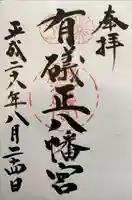 奉拝
有礒正八幡宮
平成二八年八月二十四日